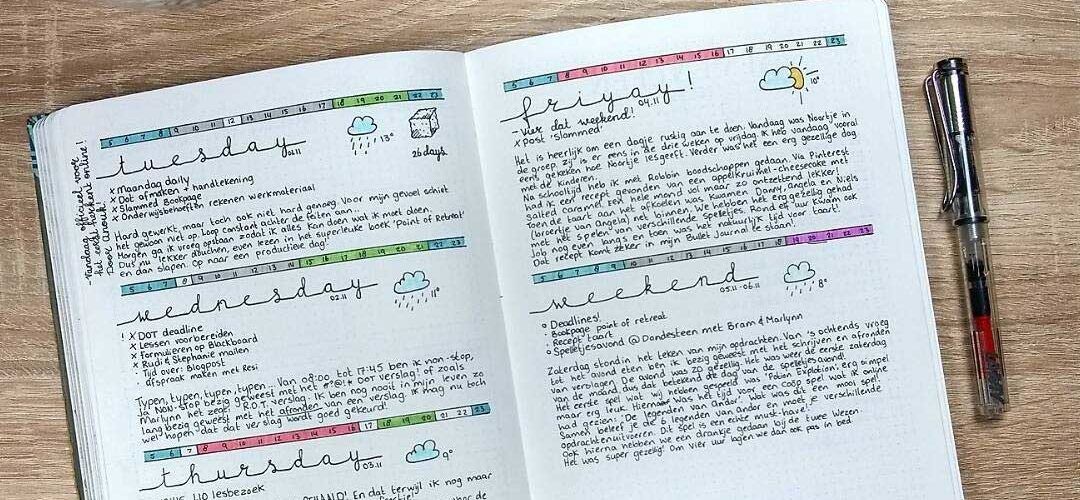 5 6 7 8 9 10 11 12 13 14 15 16 17 18 19 20 21 22 23
tuesday
01.11
13°
26 days
- Vandaag officieel voor
het eerst hikkert online!
Door Anouk!
x Maandag daily
x Dot afmaken + handtekening
x Slammed Bookpage
x Onderwijsbehoeften rekenen werkmateriaal
Hard gewerkt, maar toch ook niet hard genoeg. Voor mijn gevoel schiet
het gewoon niet op, loop constant achter de feiten aan...
Morgen ga ik vroeg opstaan zodat ik alles kan doen wat ik moet doen.
Dus nu lekker douchen, even lezen in het superleuke boek 'Point of Retreat'
en dan slapen. Op naar een productieve dag!
5 6 7 8 9 10 11 12 13 14 15 16 17 18 19 20 21 22 23
wednesday
02.11
11°
! x DOT deadline
x Lessen voorbereiden
x Formulieren op Blackboard
x Rudi & Stephanie mailen
• Tijd over: Blogpost
• afspraak maken met Resi
Typen, typen, typen, typen... Van 08:00 tot 17:45 ben ik non-stop,
ja NON-stop bezig geweest met het #?@!* DOT verslag! of zoals
Marlynn het zegt: R.O.T.-verslag. Ik ben nog nooit in mijn leven zo
lang bezig geweest met het afronden van een verslag. Ik mag nu toch
wel hopen dat dat verslag wordt goed gekeurd!
5 6 7 8 9 10 11 12 13 14 15 16 17 18 19 20 21 22 23
thursday
03.11
9°
lesbezoek
En dat terwijl ik nog maar
voor de
5 6 7 8 9 10 11 12 13 14 15 16 17 18 19 20 21 22 23
friyay!
04.11
10°
- Vier dat weekend!
x Post 'Slammed'
Het is heerlijk om een dagje rustig aan te doen. Vandaag was Noortje in
de groep, zij is er eens in de drie weken op vrijdag. Ik heb vandaag vooral
eens gekeken hoe Noortje lesgeeft. Verder was het een erg gezellige dag
met de kinderen.
Na schooltijd heb ik met Robbin boodschappen gedaan. Via Pinterest
had ik een recept gevonden van een appelkruimel-cheesecake met
salted caramel. Een hele mond vol maar zo ontzettend lekker!
Toen de taart aan het afkoelen was kwamen Danny, Angela en Niels
(broertje van Angela) net binnen. We hebben het erg gezellig gehad
met het spelen van verschillende spelletjes. Rond elf uur kwam ook
Job nog even langs en toen was het natuurlijk tijd voor taart!
Dat recept komt zeker in mijn Bullet Journal te staan!
5 6 7 8 9 10 11 12 13 14 15 16 17 18 19 20 21 22 23
weekend
05.11-06.11
8°
o Deadlines!
• Bookpage point of retreat
• Recept taart
o Spelletjesavond @ Dondesteen met Bram & Marlynn
Zaterdag stond in het teken van mijn opdrachten. Van 's ochtends vroeg
tot het avond eten ben ik bezig geweest met het schrijven en afronden
van verslagen. De avond was zo gezellig. Het was weer de eerste zaterdag
van de maand dus dat betekend de dag van de spelletjesavond!
Het eerste spel wat wij hebben gespeeld was 'Potion Explotion', erg simpel
maar erg leuk. Hierna was het tijd voor een coöp spel wat ik online
had gezien: 'De legenden van Andor'. Wat was dat een mooi spel!
Samen beleef je de 6 legenden van Andor en moet je verschillende
opdrachten uitvoeren. Dit spel is een echte must-have!
Ook hierna hebben we een drankje gedaan bij de twee Wezen
Het was super gezellig! Om vier uur lagen we dan ook pas in bed